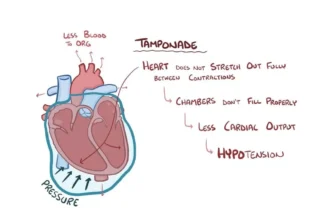 LESS BLOOD
TO ORG
TAMPONADE
HEART DOES NOT STRETCH OUT FULLY
BETWEEN CONTRACTIONS
CHAMBERS DON'T FILL PROPERLY
LESS CARDIAL OUTPUT
HYPOTENSION
PRESSURE